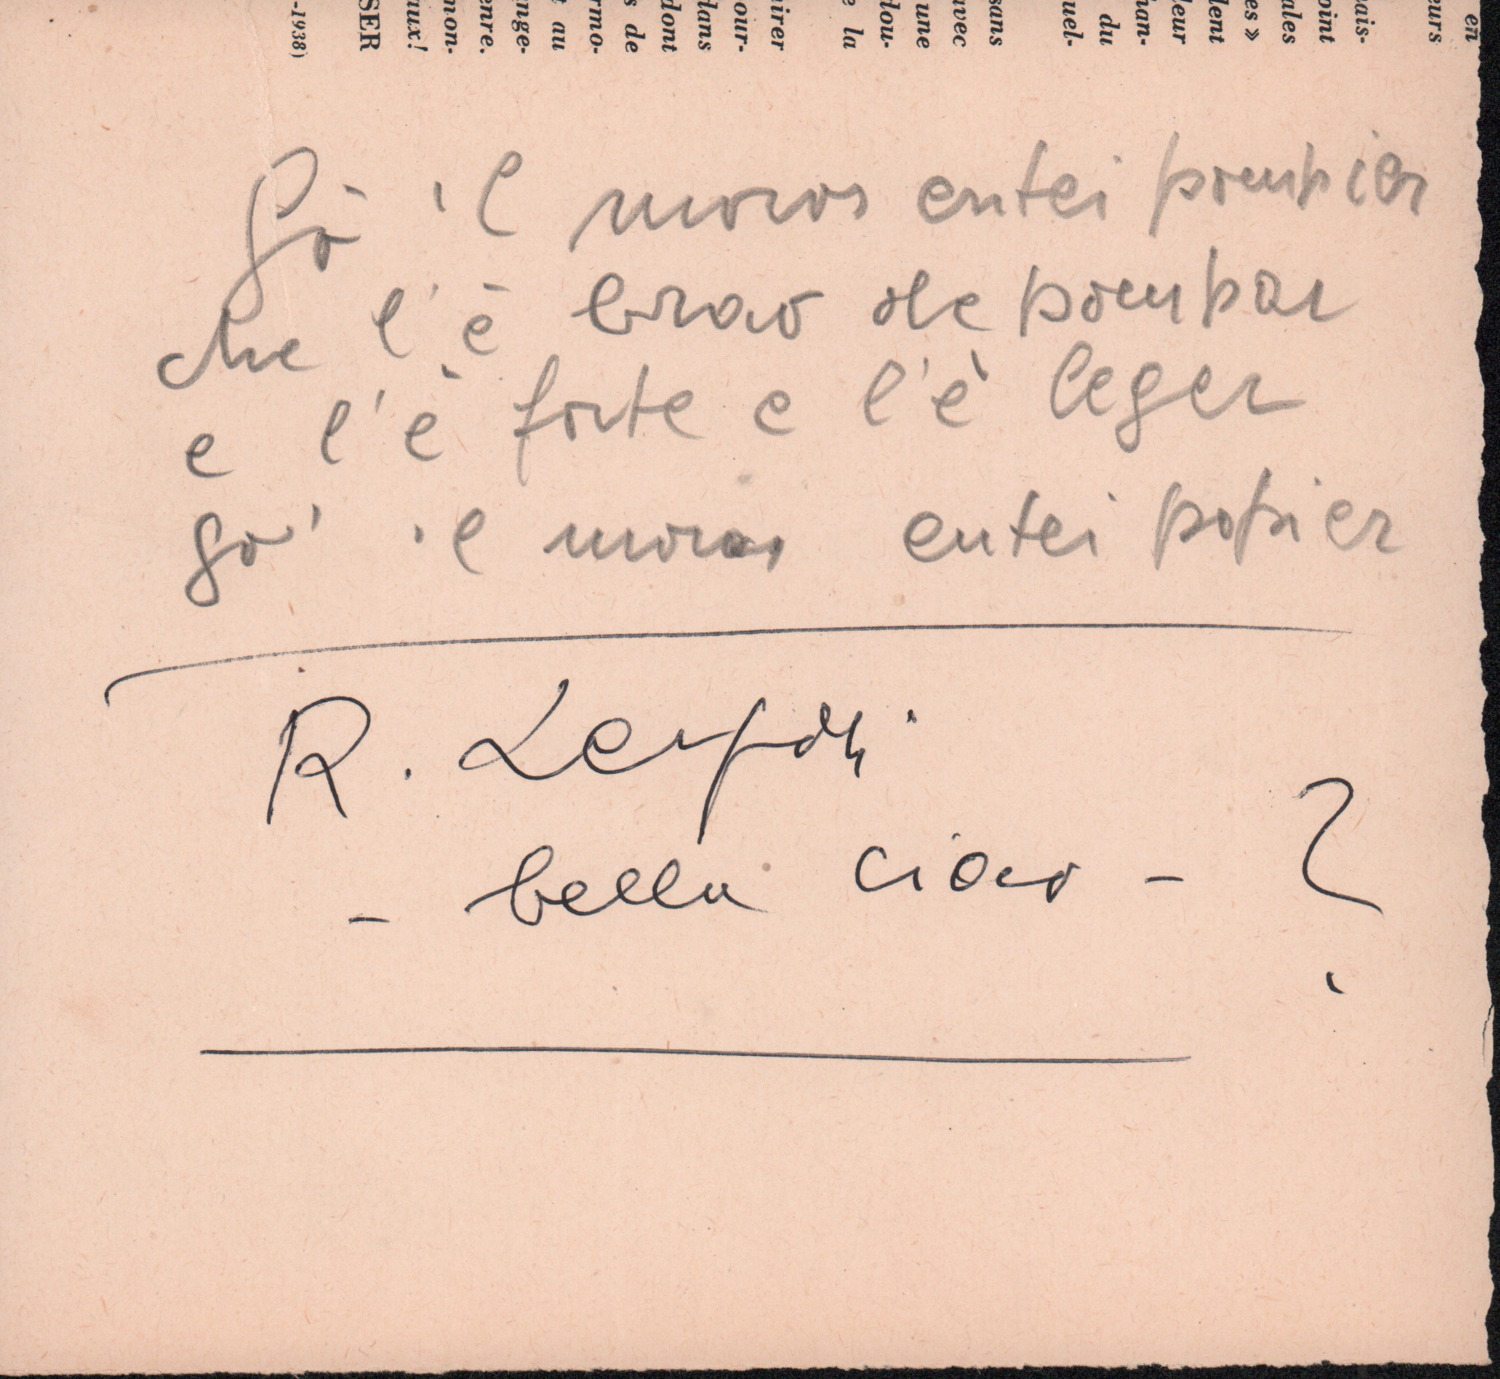 en
eurs
ais-
oint
ales
es »
lent
leur
ian-
du
uel-
sans
avec
une
dou-
e la
irer
our-
lans
dont
s de
rmo-
t au
nge-
enre.
non-
ux!
SER
-1938)
Gò il moros entei pompier
che l'è brao de pompar
e l'è forte e l'è leger
go' il moros entei popier
R. Leydi
- bella ciao - ?